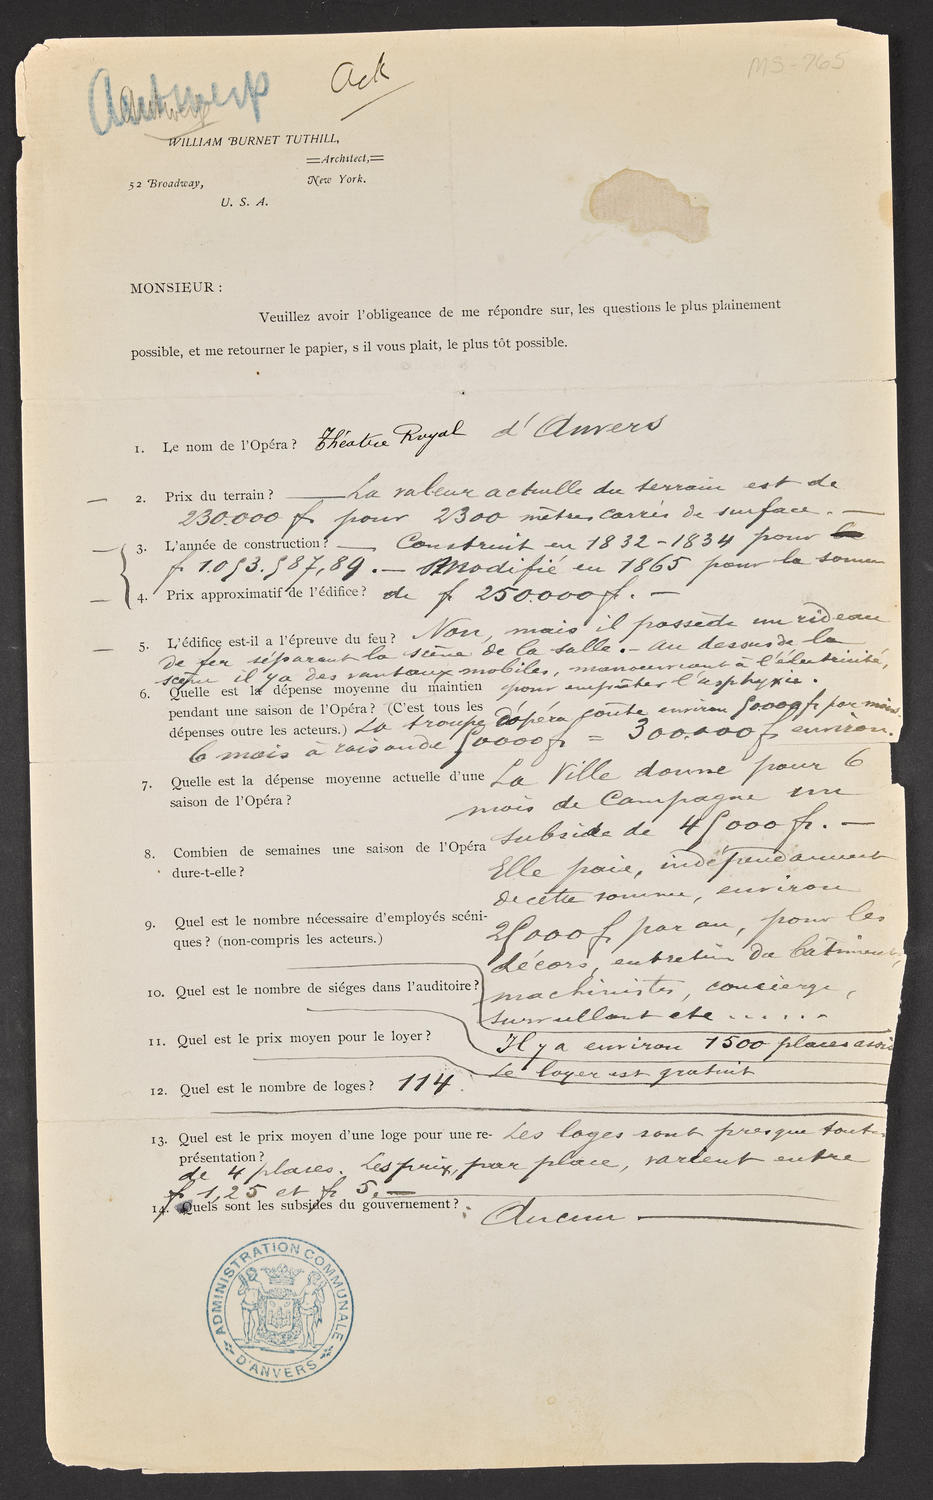 MS-765
Ack
Antwerp
Antwerp
WILLIAM BURNET TUTHILL,
Architect,
52 Broadway, New York.
U. S. A.
MONSIEUR :
Veuillez avoir l'obligeance de me répondre sur, les questions le plus plainement
possible, et me retourner le papier, s il vous plait, le plus tôt possible.
1. Le nom de l'Opéra ? Théatre Royal d'Anvers
2. Prix du terrain ? La valeur actuelle du terrain est de
230.000 f pour 2300 mètres carrés de surface. —
3. L'année de construction ? — Construit en 1832-1834 pour
fr 1.053.587,89. — Modifié en 1865 pour la somme
4. Prix approximatif de l'édifice ? de fr 250.000 fr. —
5. L'édifice est-il a l'épreuve du feu ? Non, mais il possède un rideau
de fer séparant la scène de la salle. — Au dessus de la
scène il y a des vantaux mobiles, manoeuvrant à l'électricité,
pour empêcher l'asphyxie.
6. Quelle est la dépense moyenne du maintien
pendant une saison de l'Opéra ? (C'est tous les
dépenses outre les acteurs.) La troupe d'opéra coûte environ 50000 fr par mois.
6 mois à raison de 50000 fr = 300.000 fr environ.
7. Quelle est la dépense moyenne actuelle d'une
saison de l'Opéra ?
La Ville donne pour 6
mois de Campagne un
subside de 45000 fr. —
8. Combien de semaines une saison de l'Opéra
dure-t-elle ?
Elle paie, indépendamment
de cette somme, environ
9. Quel est le nombre nécessaire d'employés scéni-
ques ? (non-compris les acteurs.)
25000 fr par an, pour les
décors, entretien du bâtiment,
10. Quel est le nombre de siéges dans l'auditoire ?
machinistes, concierge,
surveillant etc .....
11. Quel est le prix moyen pour le loyer ?
Il y a environ 1500 places assi
Le loyer est gratuit
12. Quel est le nombre de loges ? 114.
13. Quel est le prix moyen d'une loge pour une re-
présentation ?
Les loges sont presque toutes
de 4 places. Les prix, par place, varient entre
fr 1,25 et fr 5. —
14. Quels sont les subsides du gouvernement ? Aucun —
ADMINISTRATION COMMUNALE
D'ANVERS